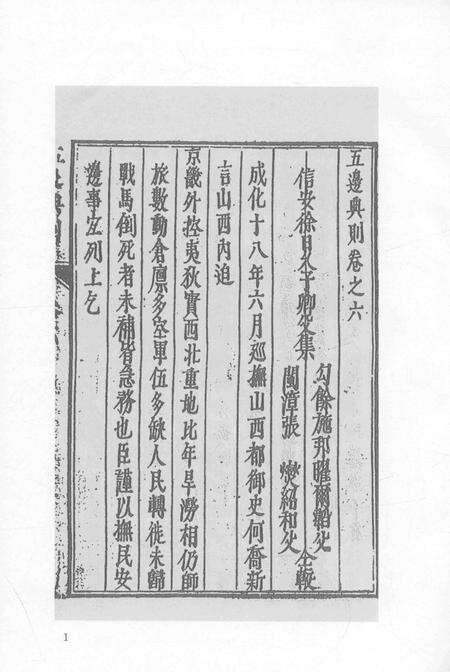 五邊典則卷之六
信安徐日久子卿父集
勾餘施邦曜爾韜父
閩漳張 燮紹和父 仝較
成化十八年六月廵撫山西都御史何喬新
言山西內迫
京畿外控夷狄實西北重地比年旱澇相仍師
旅數動倉廩多空軍伍多缺人民轉徙未歸
戰馬倒死者未補皆急務也臣謹以撫民安
邊事宜列上乞
1